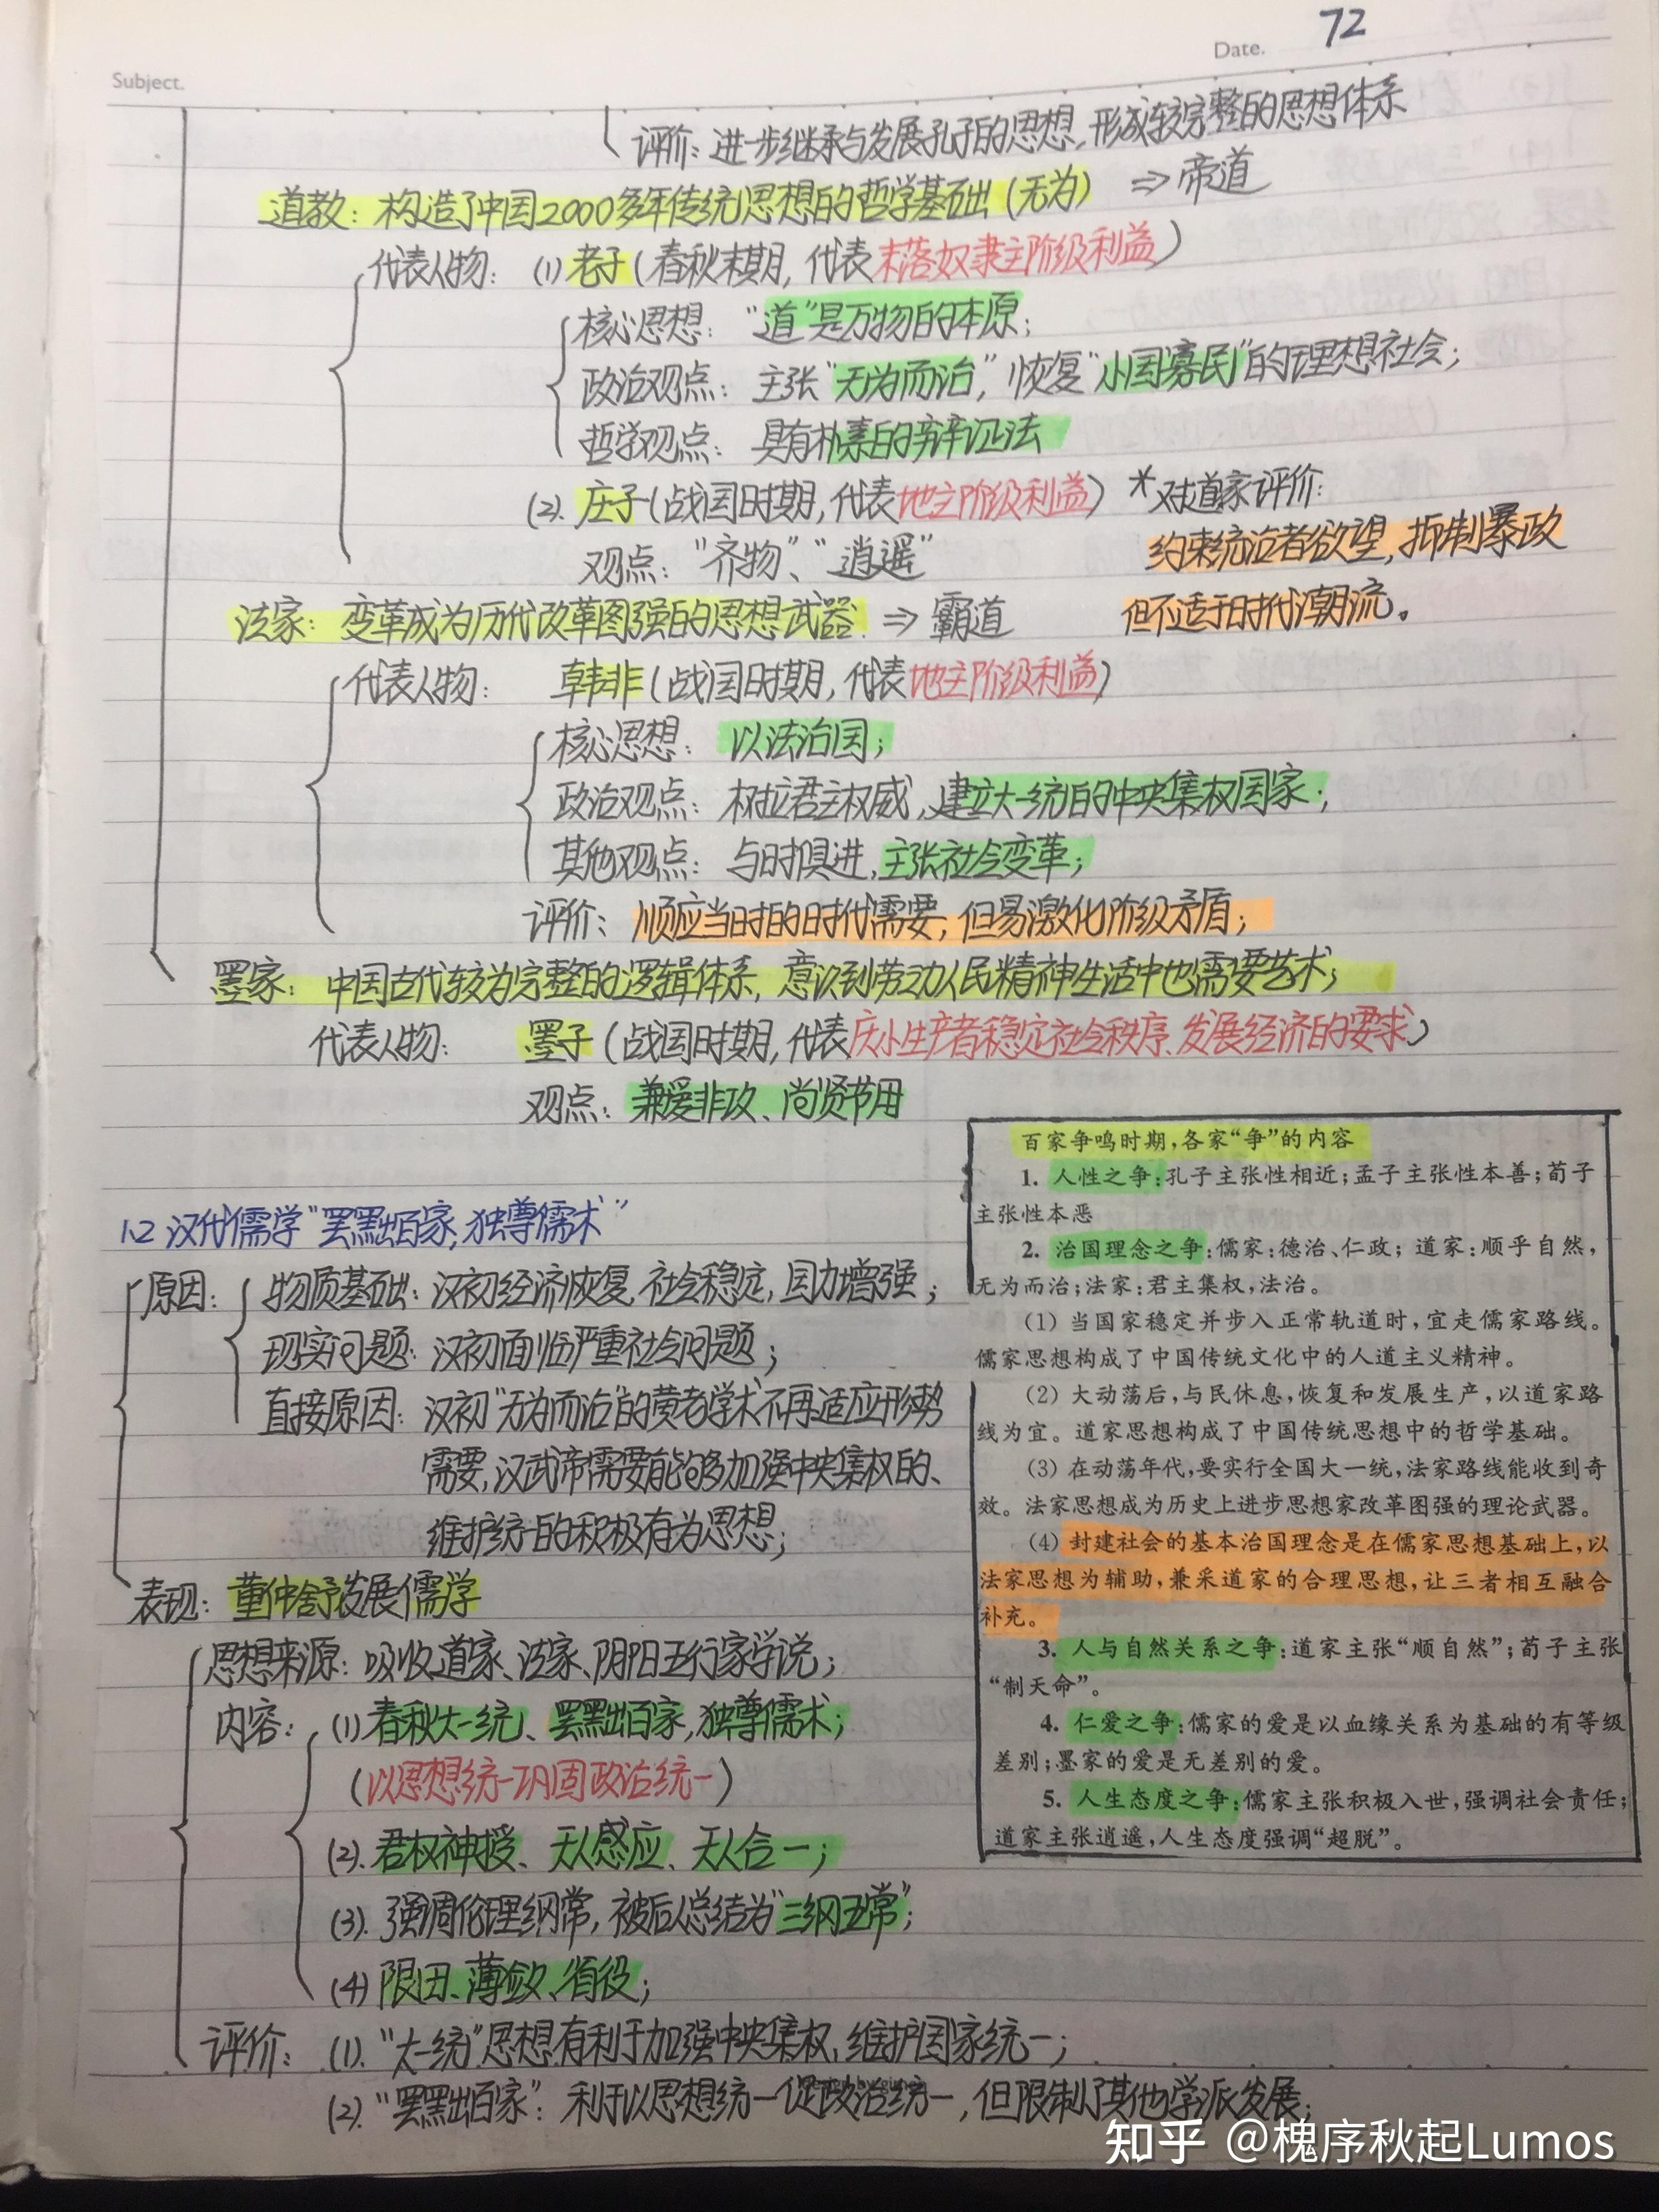 Subject.
Date. 72
评价：进一步继承与发展孔子的思想，形成较完整的思想体系
道教：构造了中国2000多年传统思想的哲学基础（无为） ⇒ 帝道
代表人物：(1) 老子（春秋末期，代表末落奴隶主阶级利益）
核心思想：“道”是万物的本原；
政治观点：主张“无为而治，”恢复“小国寡民”的理想社会；
哲学观点：具有朴素的辩证法
(2). 庄子（战国时期，代表地主阶级利益） *对道家评价：
观点：“齐物”、“逍遥” 约束统治者欲望，抑制暴政
法家：变革成为历代改革图强的思想武器. ⇒ 霸道 但不适于时代潮流。
代表人物： 韩非（战国时期，代表地主阶级利益）
核心思想：以法治国；
政治观点：树立君主权威、建立大一统的中央集权国家；
其他观点：与时俱进，主张社会变革；
评价：顺应当时的时代需要，但易激化阶级矛盾；
墨家：中国古代较为完整的逻辑体系，意识到劳动人民精神生活中也需要艺术；
代表人物： 墨子（战国时期，代表小生产者稳定社会秩序、发展经济的要求）
观点：兼爱非攻、尚贤节用
1.2 汉代儒学“罢黜百家，独尊儒术”
原因：物质基础：汉初经济恢复，社会稳定，国力增强；
现实问题：汉初面临严重社会问题；
直接原因：汉初“无为而治”的黄老学术不再适应形势
需要，汉武帝需要能够加强中央集权的、
维护统一的积极有为思想；
表现：董仲舒发展儒学
思想来源：吸收道家、法家、阴阳五行家学说；
内容：(1) 春秋大一统、罢黜百家，独尊儒术；
（以思想统一巩固政治统一）
(2). 君权神授、天人感应、天人合一；
(3). 强调伦理纲常，被后人总结为“三纲五常”；
(4) 限田、薄敛、省役；
评价：(1). “大一统”思想有利于加强中央集权，维护国家统一；
(2). “罢黜百家”：利于以思想统一促政治统一，但限制了其他学派发展；
百家争鸣时期，各家“争”的内容
1. 人性之争：孔子主张性相近；孟子主张性本善；荀子
主张性本恶
2. 治国理念之争：儒家：德治、仁政；道家：顺乎自然，
无为而治；法家：君主集权，法治。
(1) 当国家稳定并步入正常轨道时，宜走儒家路线。
儒家思想构成了中国传统文化中的人道主义精神。
(2) 大动荡后，与民休息，恢复和发展生产，以道家路
线为宜。道家思想构成了中国传统思想中的哲学基础。
(3) 在动荡年代，要实行全国大一统，法家路线能收到奇
效。法家思想成为历史上进步思想家改革图强的理论武器。
(4) 封建社会的基本治国理念是在儒家思想基础上，以
法家思想为辅助，兼采道家的合理思想，让三者相互融合
补充。
3. 人与自然关系之争：道家主张“顺自然”；荀子主张
“制天命”。
4. 仁爱之争：儒家的爱是以血缘关系为基础的有等级
差别；墨家的爱是无差别的爱。
5. 人生态度之争：儒家主张积极入世，强调社会责任；
道家主张逍遥，人生态度强调“超脱”。
知乎 @槐序秋起Lumos